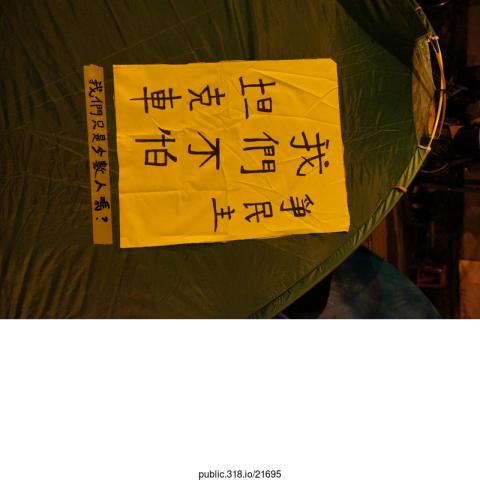 爭民主
我們不怕
坦克車
我們只是少數人嗎?
public.318.io/21695